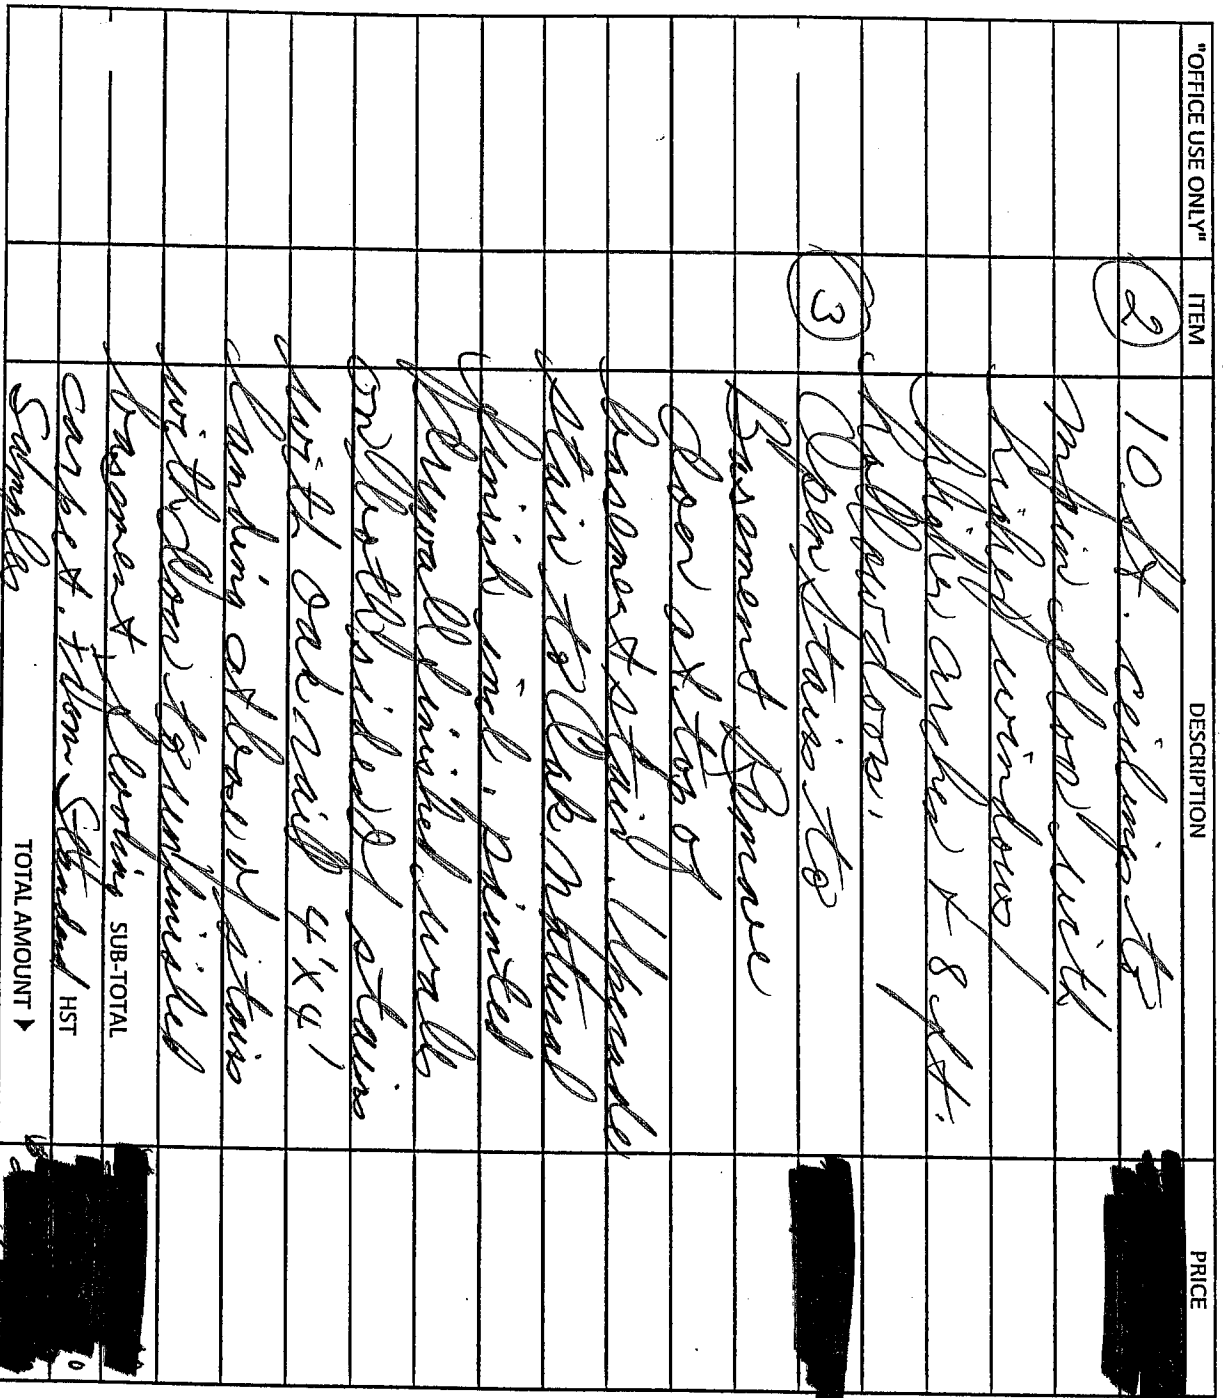 "OFFICE USE ONLY" ITEM DESCRIPTION PRICE
2 10 ft. ceilings to
main floor with
higher windows
higher arches & 8 ft.
hollow doors.
3 Open stairs to
Basement Remove
door at top of
basement stairs. Upgrade
stair to Oak natural
finish incl. painted
Drywall finished walls
on both sides of stairs
with oak rail 4'x4'
landing at base of stairs
with door to unfinished
basement. flooring SUB-TOTAL
carpet. from Standard HST
Samples TOTAL AMOUNT